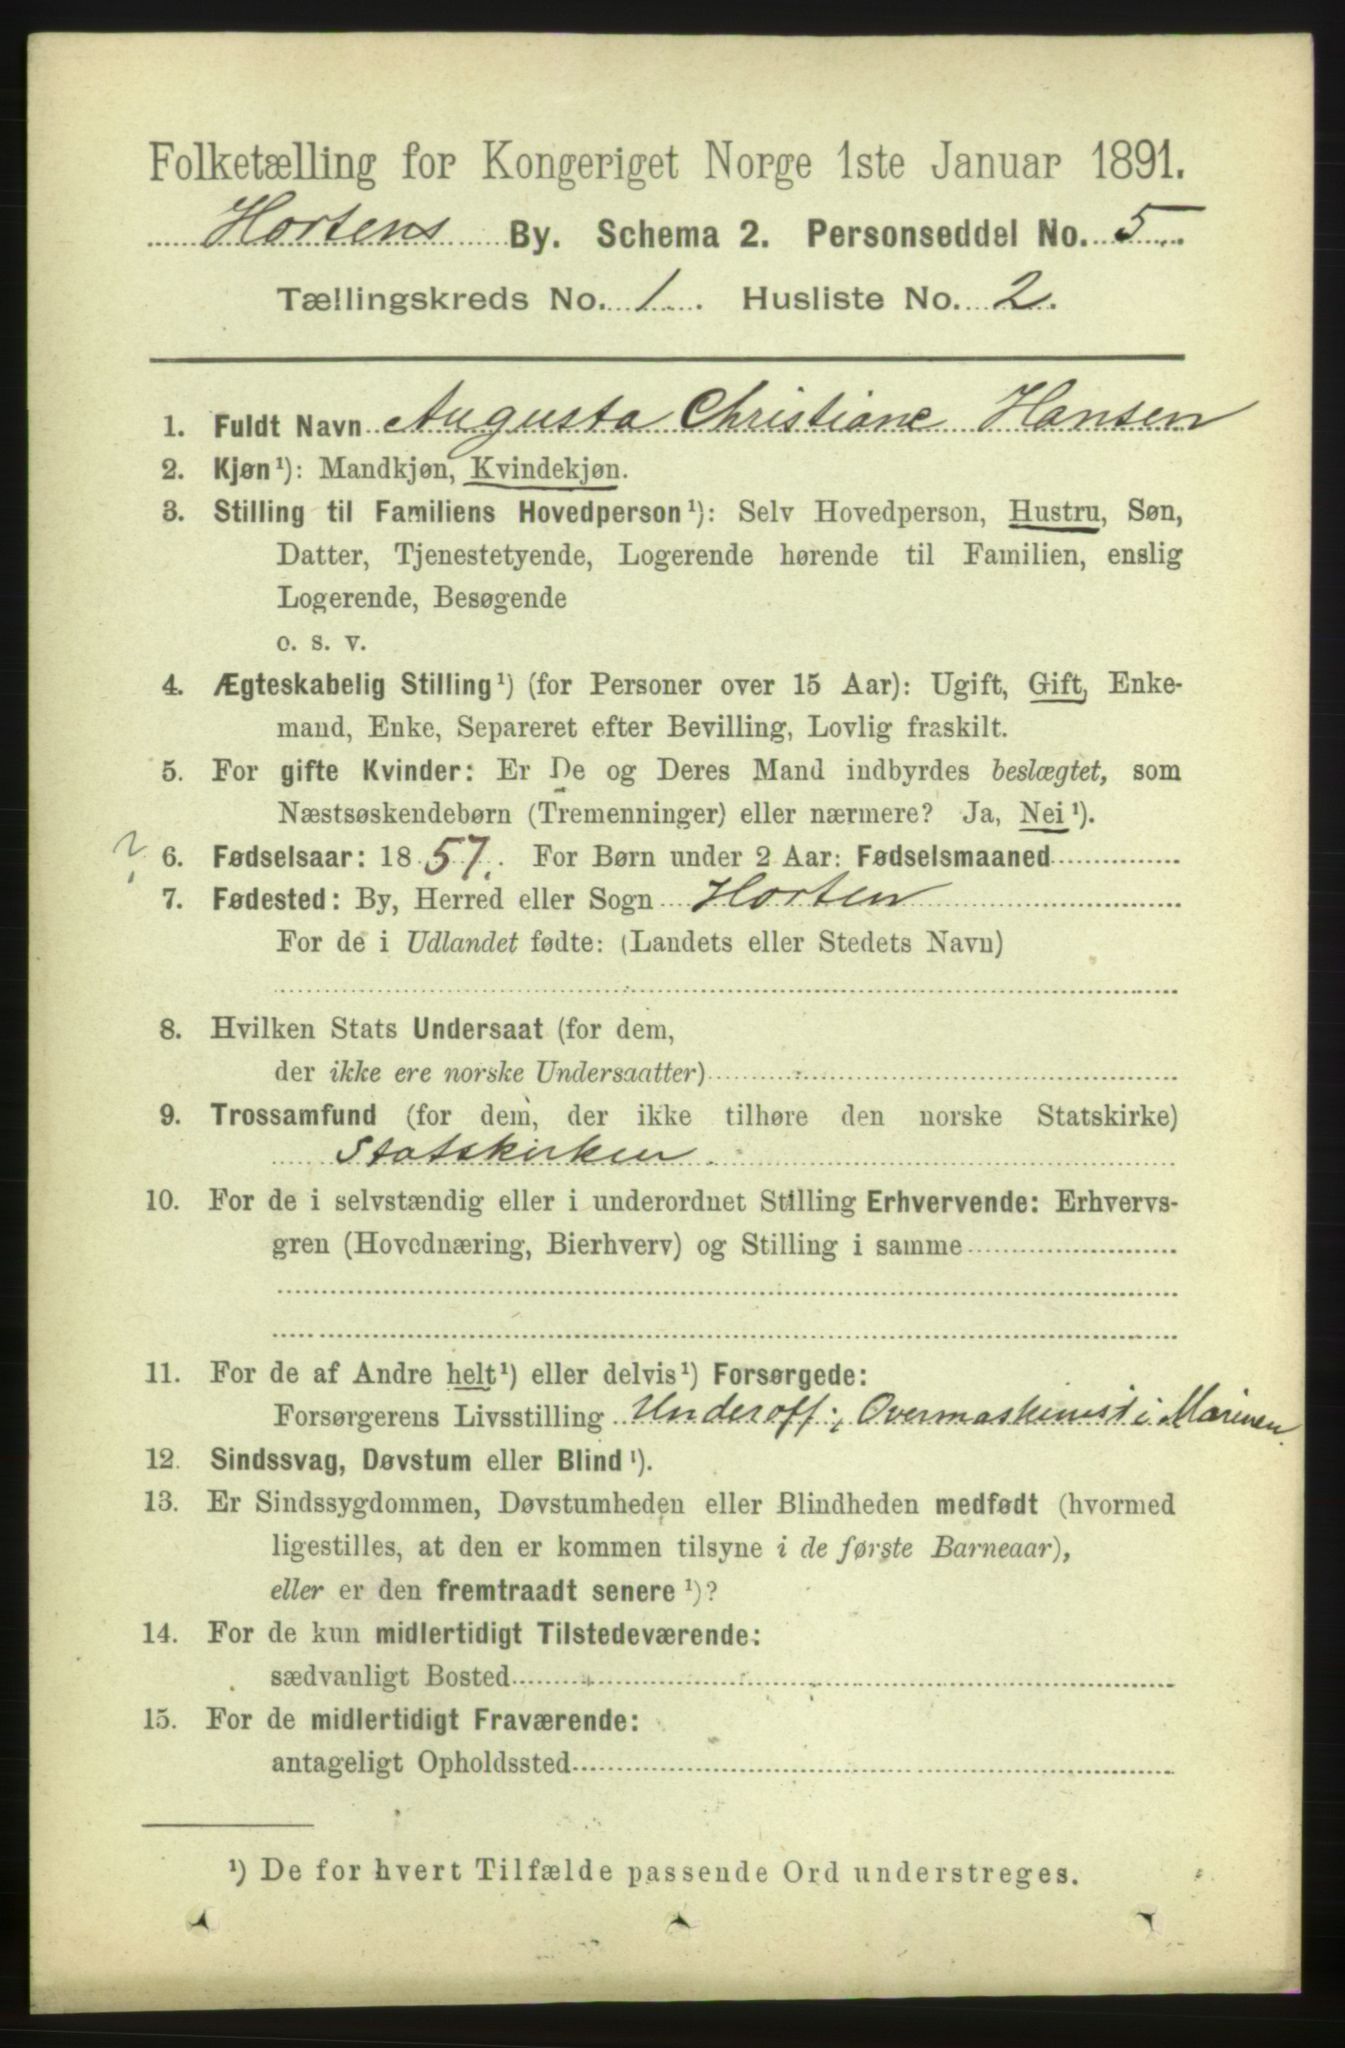 Folketælling for Kongeriget Norge 1ste Januar 1891.
Hortens By. Schema 2. Personseddel No. 5
Tællingskreds No. 1. Husliste No. 2.
1. Fuldt Navn Augusta Christiane Hansen
2. Kjøn¹): Mandkjøn, Kvindekjøn.
3. Stilling til Familiens Hovedperson¹): Selv Hovedperson, Hustru, Søn,
Datter, Tjenestetyende, Logerende hørende til Familien, enslig
Logerende, Besøgende
o. s. v.
4. Ægteskabelig Stilling¹) (for Personer over 15 Aar): Ugift, Gift, Enke-
mand, Enke, Separeret efter Bevilling, Lovlig fraskilt.
5. For gifte Kvinder: Er De og Deres Mand indbyrdes beslægtet, som
Næstsøskendebørn (Tremenninger) eller nærmere? Ja, Nei¹).
? 6. Fødselsaar: 1857. For Børn under 2 Aar: Fødselsmaaned
7. Fødested: By, Herred eller Sogn Horten
For de i Udlandet fødte: (Landets eller Stedets Navn)
8. Hvilken Stats Undersaat (for dem,
der ikke ere norske Undersaatter)
9. Trossamfund (for dem, der ikke tilhøre den norske Statskirke)
Statskirken.
10. For de i selvstændig eller i underordnet Stilling Erhvervende: Erhvervs-
gren (Hovednæring, Bierhverv) og Stilling i samme
11. For de af Andre helt¹) eller delvis¹) Forsørgede:
Forsørgerens Livsstilling Underoff; Overmaskinist i Marinen.
12. Sindssvag, Døvstum eller Blind¹).
13. Er Sindssygdommen, Døvstumheden eller Blindheden medfødt (hvormed
ligestilles, at den er kommen tilsyne i de første Barneaar),
eller er den fremtraadt senere¹)?
14. For de kun midlertidigt Tilstedeværende:
sædvanligt Bosted
15. For de midlertidigt Fraværende:
antageligt Opholdssted
¹) De for hvert Tilfælde passende Ord understreges.